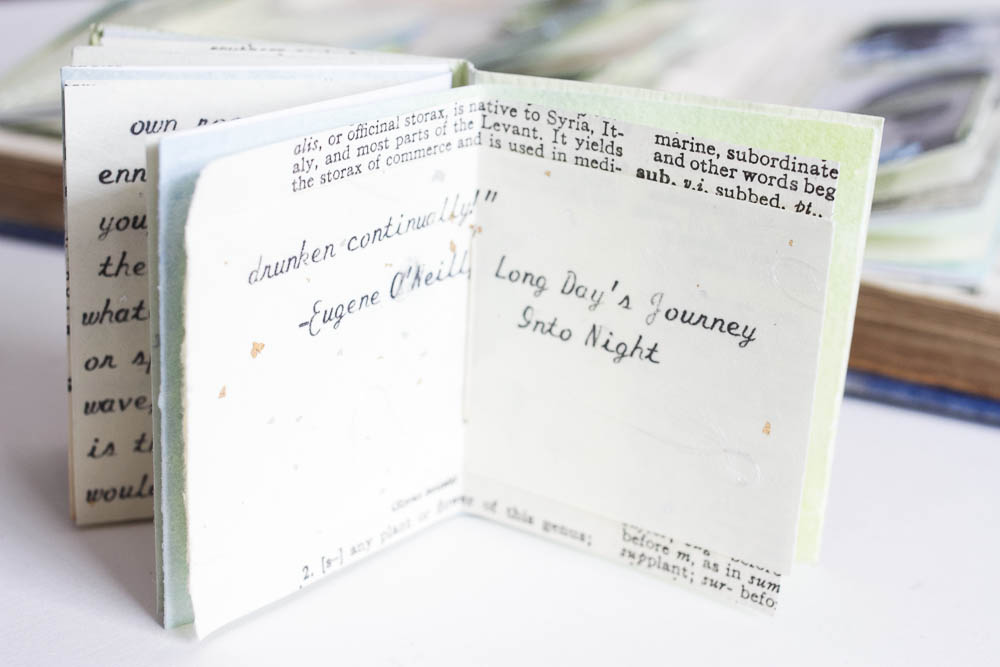 own
enn
you
the
what
or sp
wave,
is th
would
alis, or officinal storax, is native to Syria, It-
aly, and most parts of the Levant. It yields
the storax of commerce and is used in medi-
drunken continually!"
-Eugene O'Neill,
2. [s-] any plant or flower of this genus;
marine, subordinate
and other words beg
sub. v.i. subbed, pt..
Long Day's Journey
Into Night
before m, as in sum
supplant; sur- befo